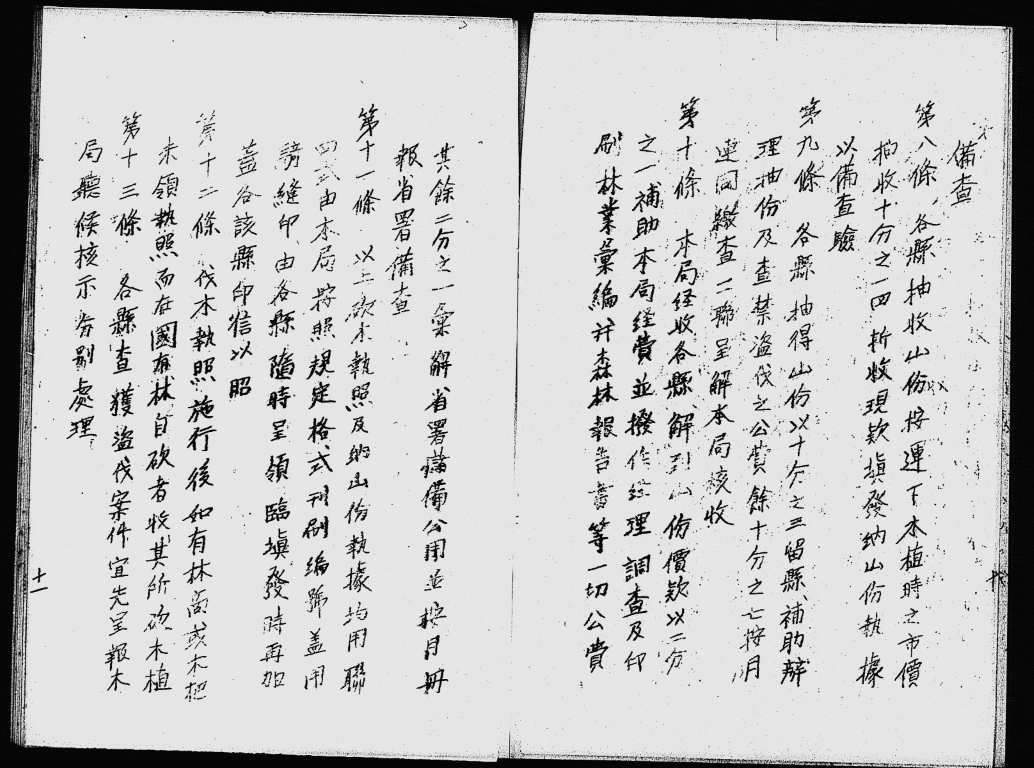 備查
第八條 各縣抽收山份按運下木植時之市價
抽收十分之一四折收現欵填發納山份執據
以備查驗
第九條 各縣抽得山份以十分之三留縣補助辦
理抽份及查禁盜伐之公費餘十分之七按月
連同繳查二聯呈解本局核收
第十條 本局经收各縣解到山份價欵以二分
之一補助本局经費並撥作经理調查及印
刷林業彙编并森林報告書等一切公費
十
其餘二分之一彙解省署備公用並按月冊
報省署備查
第十一條 以上砍木執照及納山份執據均用聯
四式由本局按照規定格式刊刷编號盖用
騎縫印由各縣隨時呈領臨填發時再加
蓋各該縣印信以昭
第十二條 伐木執照施行後如有林商或木把
未領執照而在國有林自砍者收其所砍木植
第十三條 各縣查獲盜伐案件宜先呈報本
局聽候核示分別處理
十一